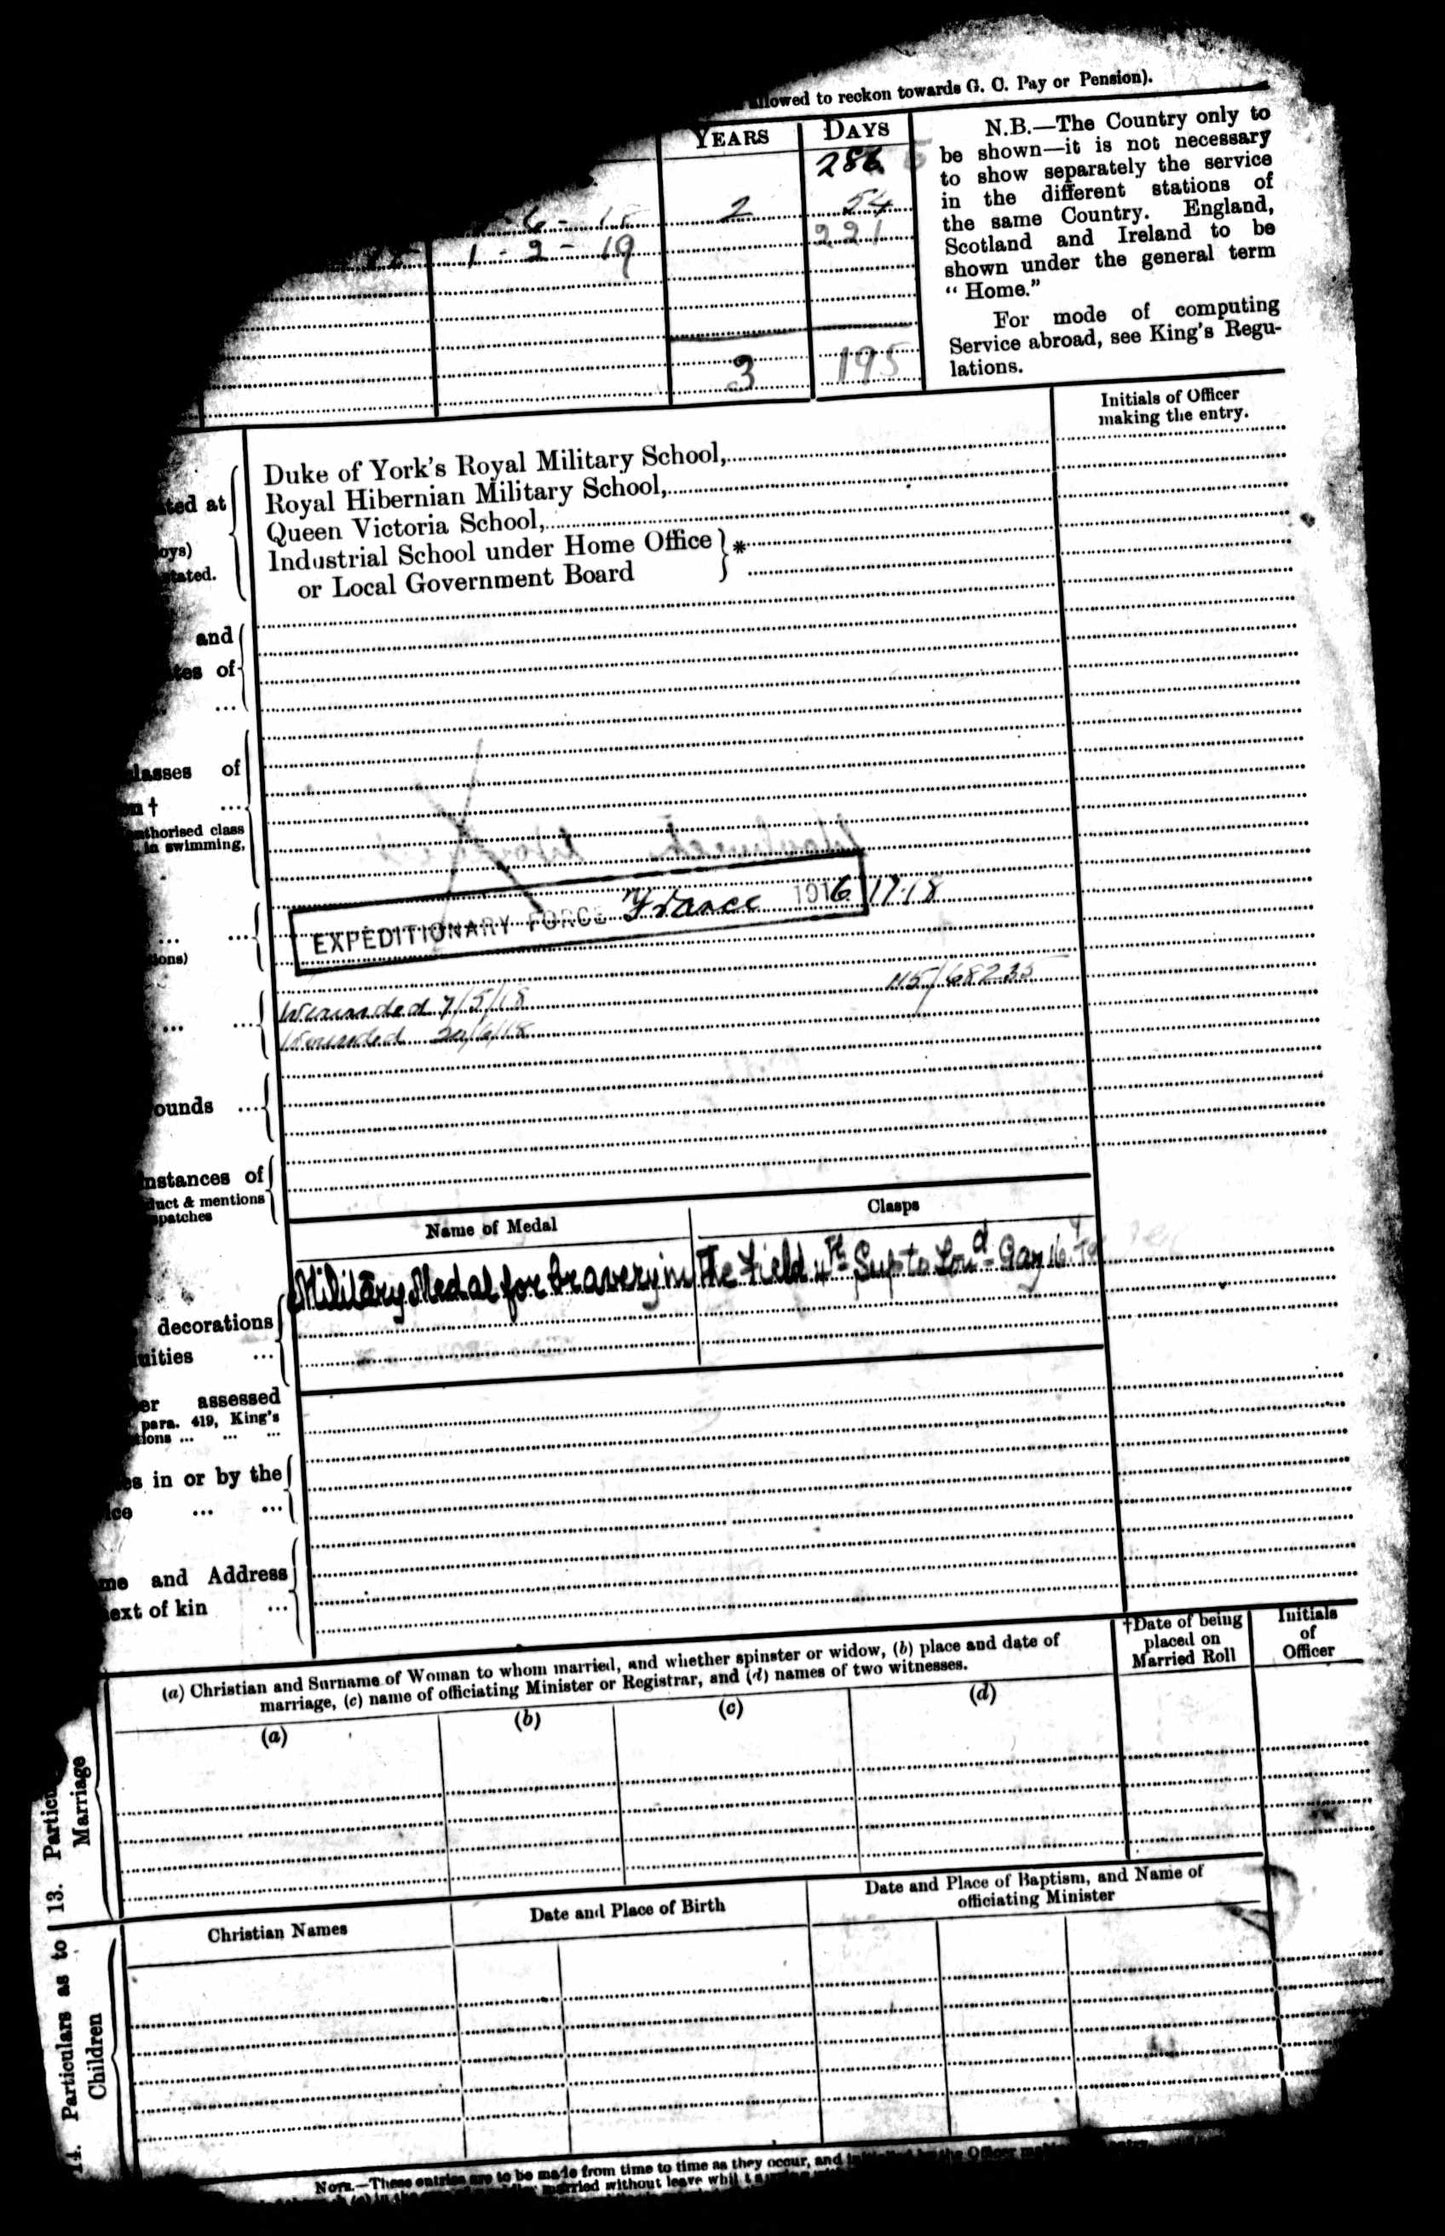 allowed to reckon towards G. C. Pay or Pension).
YEARS DAYS
286
6 - 18 2 54
1 - 2 - 19 221
3 195
N.B.—The Country only to
be shown—it is not necessary
to show separately the service
in the different stations of
the same Country. England,
Scotland and Ireland to be
shown under the general term
“ Home.”
For mode of computing
Service abroad, see King's Regu-
lations.
Initials of Officer
making the entry.
ted at
oys)
stated.
Duke of York's Royal Military School,
Royal Hibernian Military School,
Queen Victoria School,
Industrial School under Home Office } *
or Local Government Board
and
tes of
...
lasses of
on † ...
uthorised class
in swimming,
EXPEDITIONARY FORCE France 1916 17.18
... ...
ions)
115/68235
Wounded 7/5/18
... ...
Wounded 20/6/18
ounds ...
nstances of
duct & mentions
spatches
Name of Medal Clasps
Military Medal for bravery in The Field 4th Sup to Lond Gaz 16
decorations
uities ...
er assessed
para. 419, King's
tions ... ... ...
es in or by the
ice ... ...
me and Address
next of kin ...
(a) Christian and Surname of Woman to whom married, and whether spinster or widow, (b) place and date of
marriage, (c) name of officiating Minister or Registrar, and (d) names of two witnesses.
†Date of being
placed on
Married Roll
Initials
of
Officer
(a) (b) (c) (d)
13. Particu
Marriage
Christian Names
Date and Place of Birth
Date and Place of Baptism, and Name of
officiating Minister
14. Particulars as to
Children
NOTE.—These entries are to be made from time to time as they occur, and the Officer
married without leave